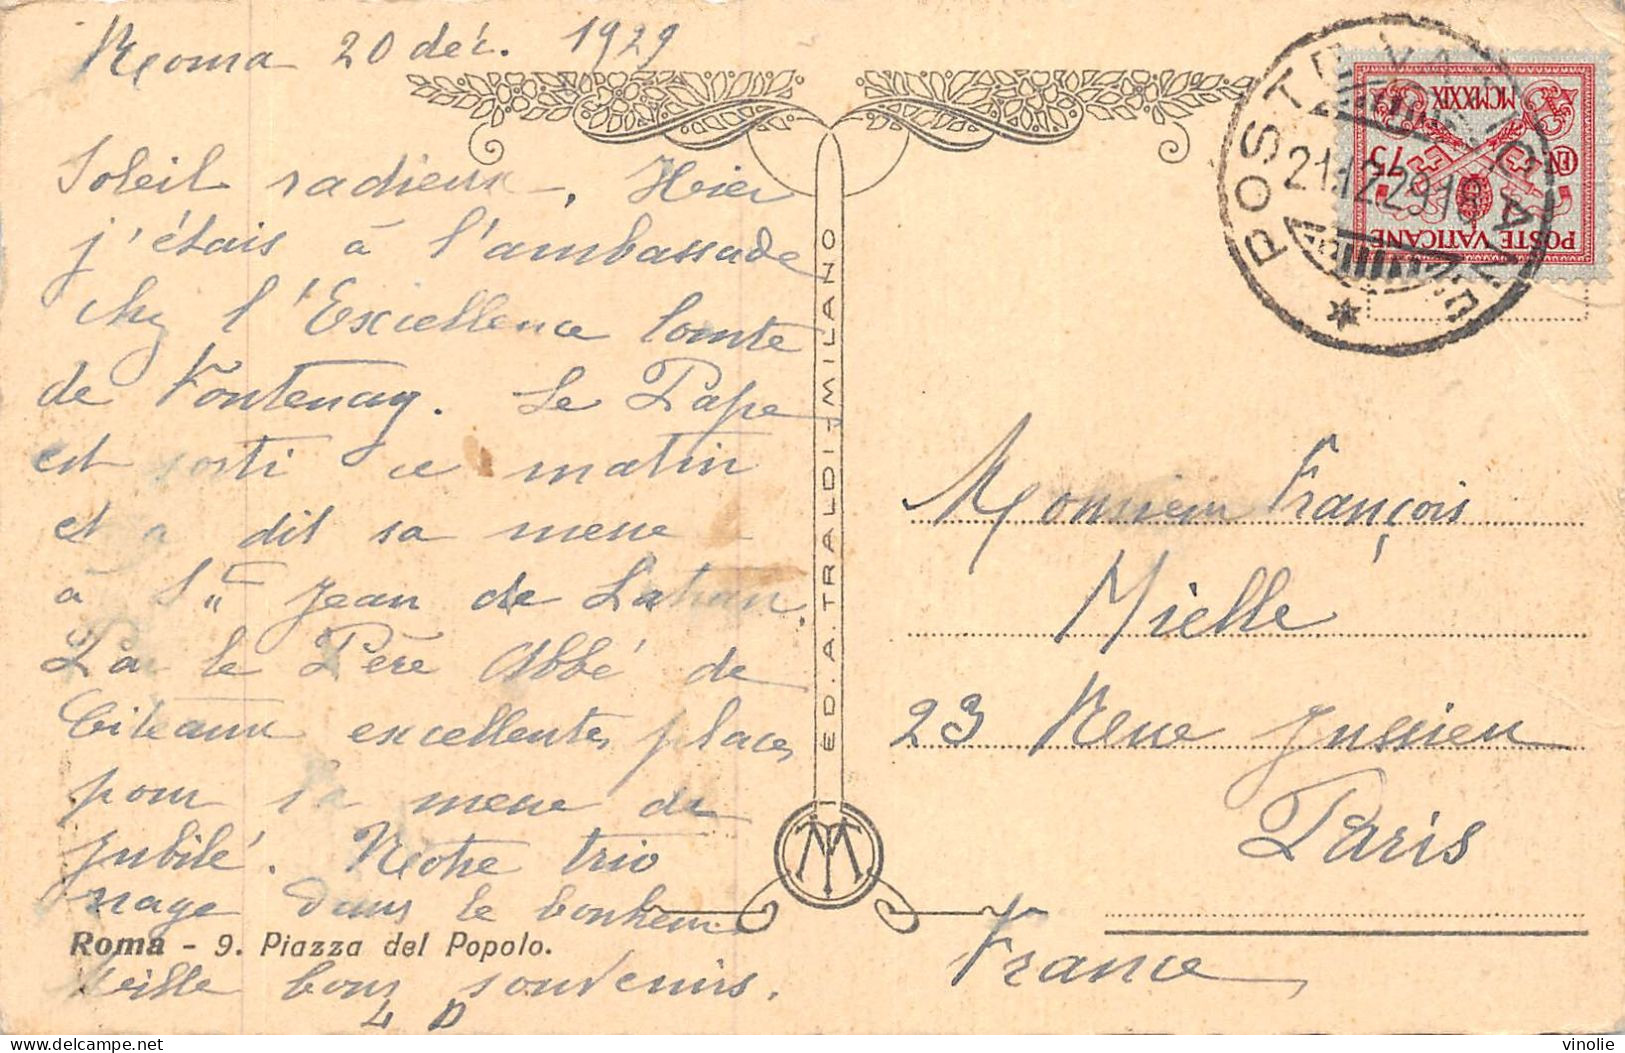 Roma 20 déc. 1929
Soleil radieux. Hier
j'étais à l'ambassade
chez l'Excellence Comte
de Fontenay. Le Pape
est sorti ce matin
et a dit sa messe
à St Jean de Latran.
Par le Père Abbé de
Citeaux excellentes places
pour la messe de
jubilé. Notre trio
nage dans le bonheur
Roma - 9. Piazza del Popolo.
Mille bons souvenirs.
L D
ED. A. TRALDI - MILANO
POSTE VATICANE
MCMXXIX
CEN 75
POSTE VATICANE
21.12.29.18
Monsieur François
Mielle
23 Rue Jussieu
Paris
France
delcampe.net
vinolie